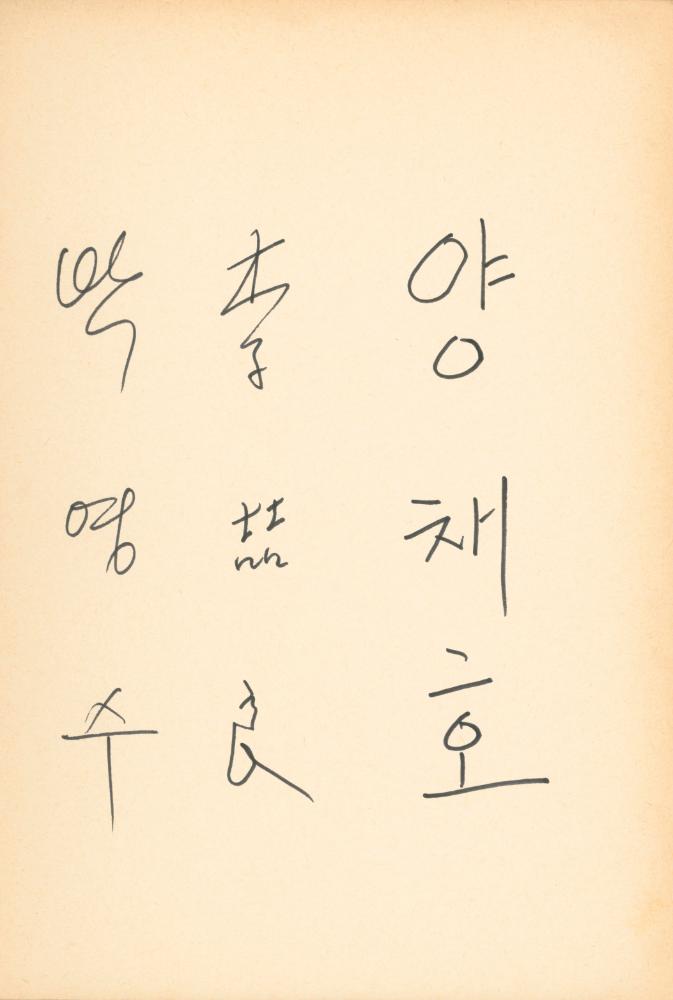 양채호
李喆良
박영수